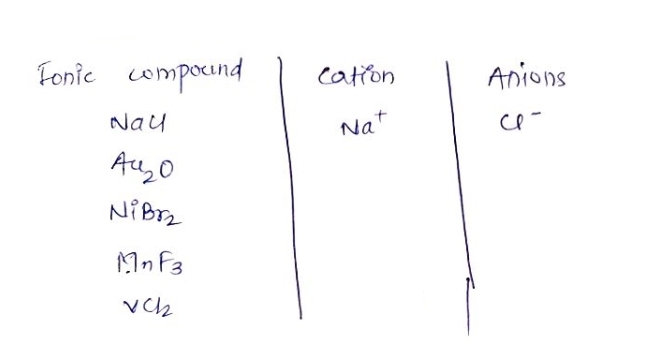 Ionic compound Cation Anions
NaCl Na+ Cl-
Au2O
NiBr2
MnF3
VCl2